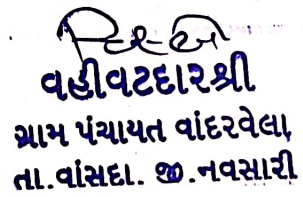 વહીવટદારશ્રી
ગ્રામ પંચાયત વાંદરવેલા,
તા.વાંસદા. જી.નવસારી